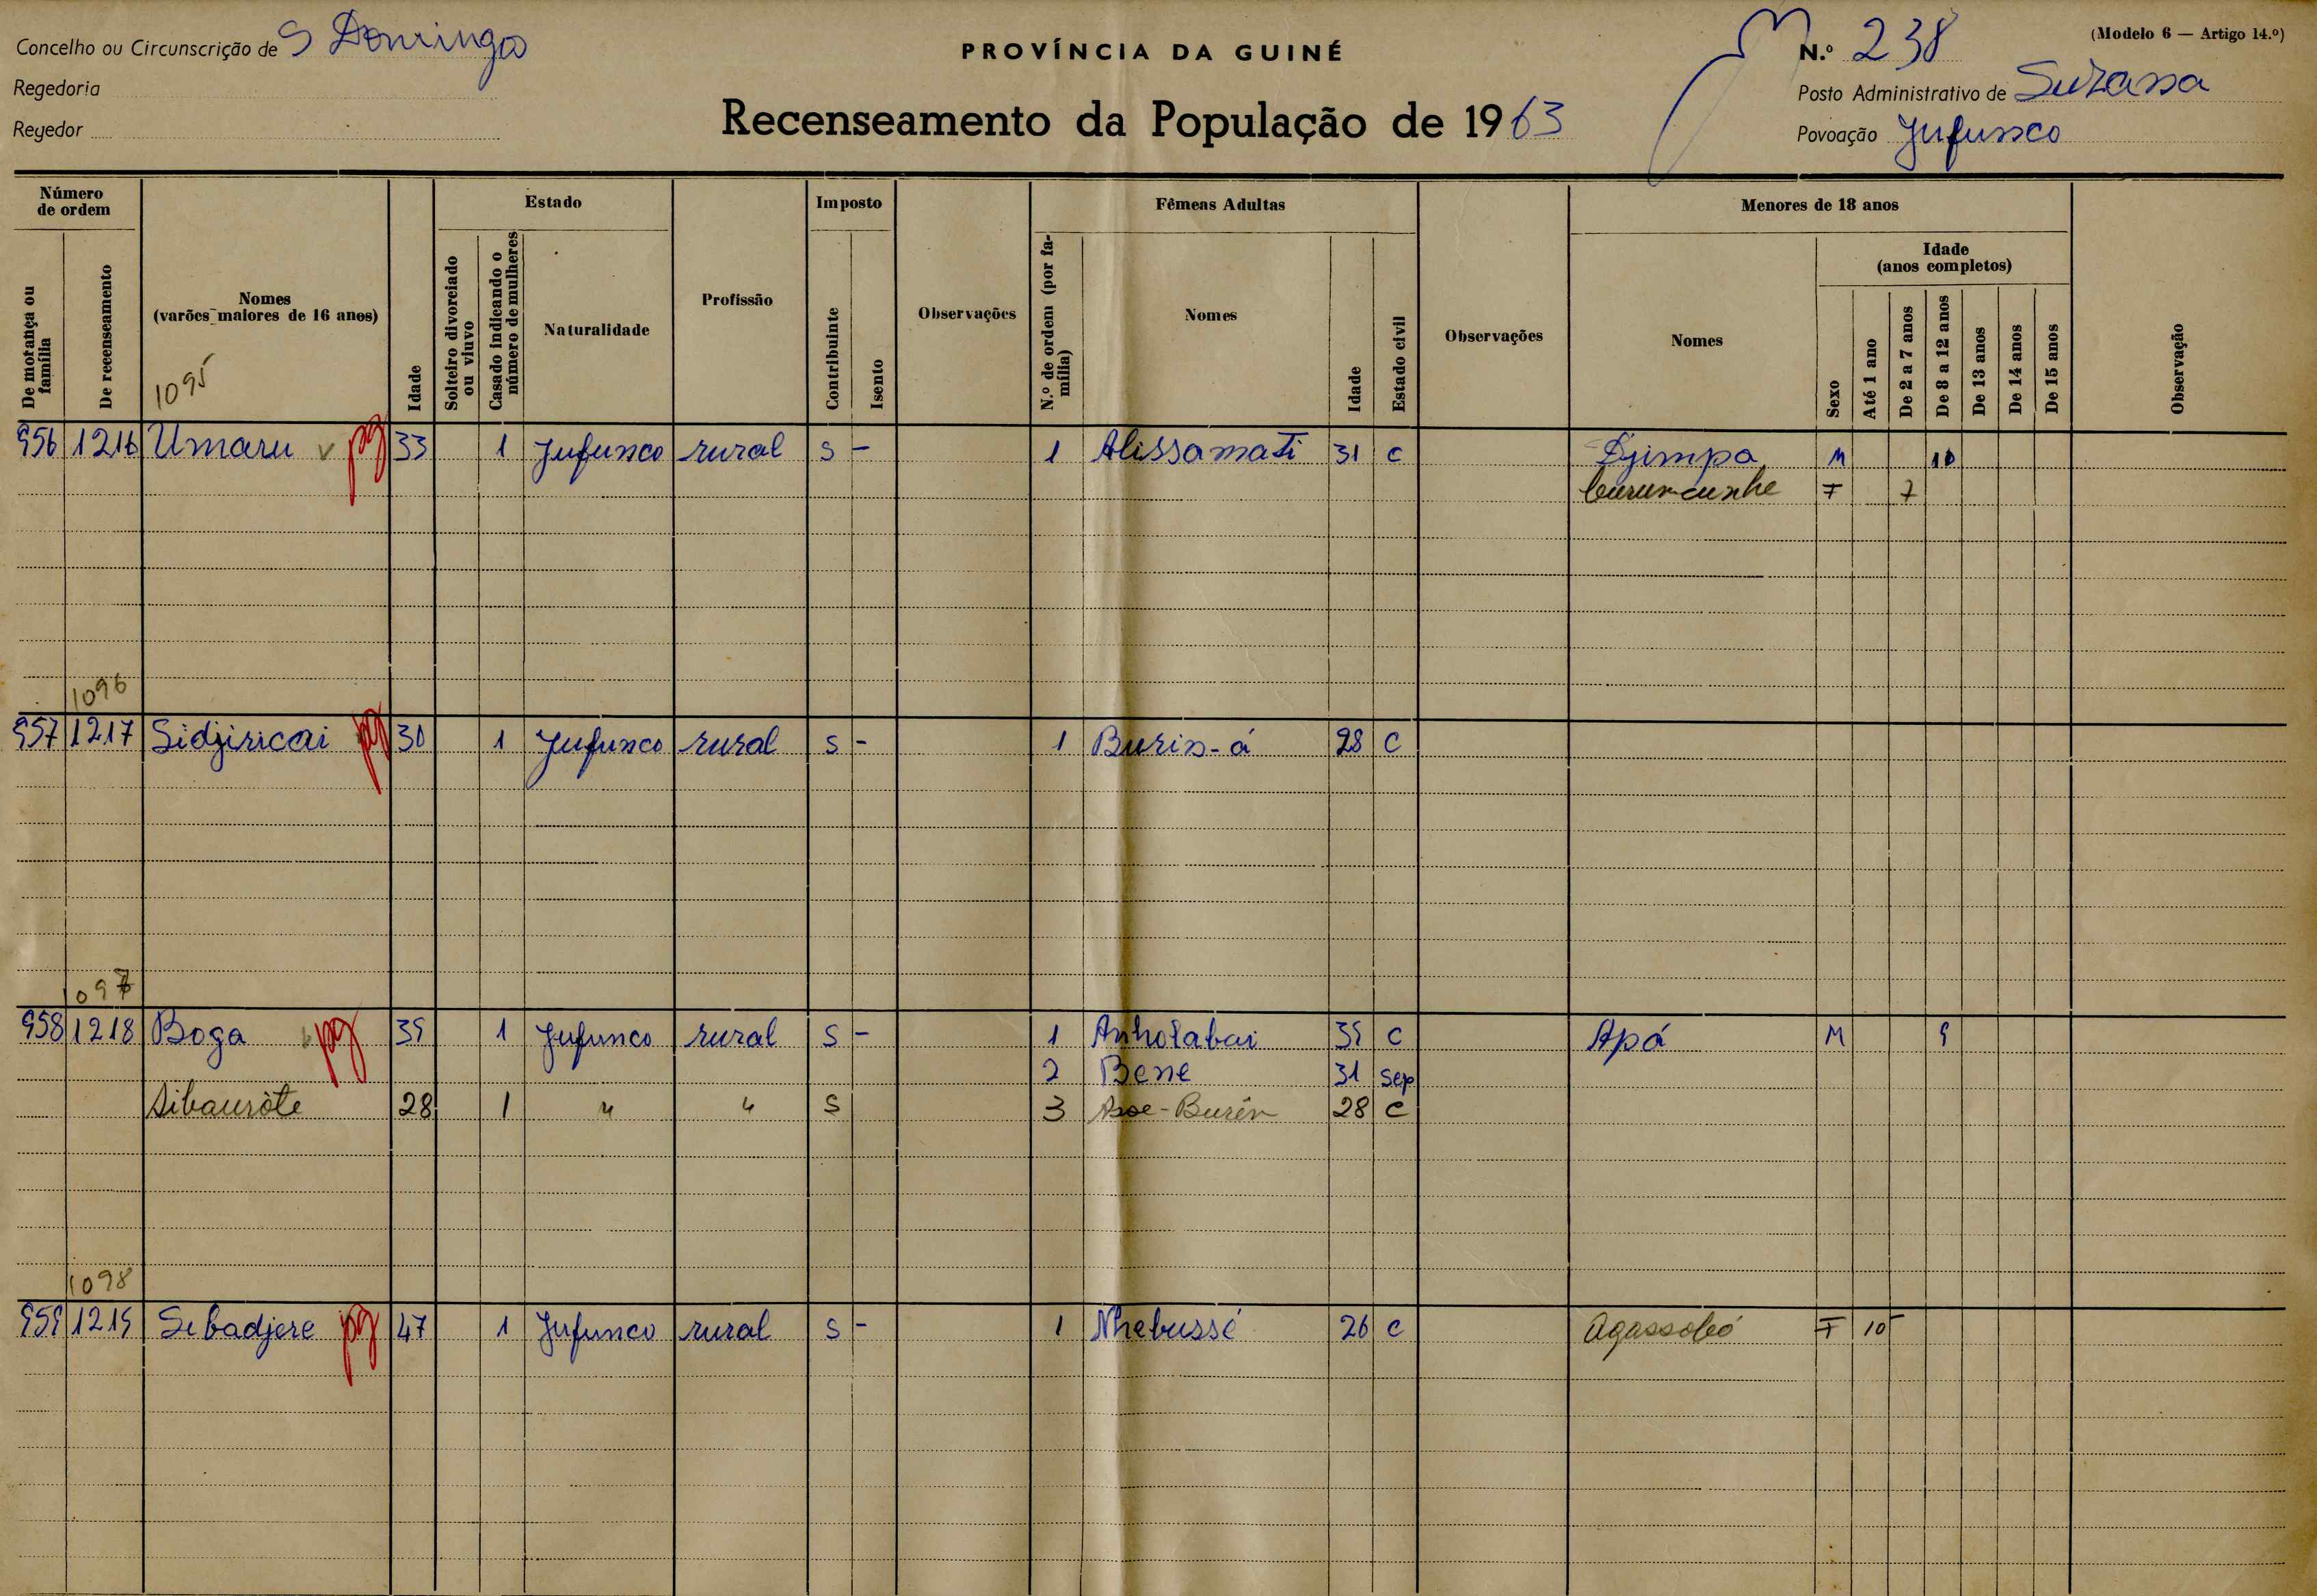 Concelho ou Circunscrição de S Domingos
PROVÍNCIA DA GUINÉ
N.º 238
(Modelo 6 — Artigo 14.º)
Regedoria
Posto Administrativo de Suzana
Regedor
Recenseamento da População de 1963
Povoação Jufunco
Número de ordem
De morança ou família
De recenseamento
Nomes
(varões maiores de 16 anos)
1095
Idade
Estado
Solteiro divorciado ou viuvo
Casado indicando o número de mulheres
Naturalidade
Profissão
Imposto
Contribuinte
Isento
Observações
Fêmeas Adultas
N.º de ordem (por família)
Nomes
Idade
Estado civil
Observações
Menores de 18 anos
Nomes
Sexo
Idade
(anos completos)
Até 1 ano
De 2 a 7 anos
De 8 a 12 anos
De 13 anos
De 14 anos
De 15 anos
Observação
956 1216 Umaru v pg 33 1 Jufunco rural S - 1 Alissamati 31 C Djimpa M 10
F 7
1096
957 1217 Sidjiricai pg 30 1 Jufunco rural S - 1 Burin-á 28 C
1097
958 1218 Boga v pg 39 1 Jufunco rural S - 1 Anholabai 39 C Apá M 9
2 Bene 31 Sep
Sibauróte 28 1 " " S 3 Asse-Burén 28 C
1098
959 1219 Sebadjere pg 47 1 Jufunco rural S - 1 Nhebussé 26 C F